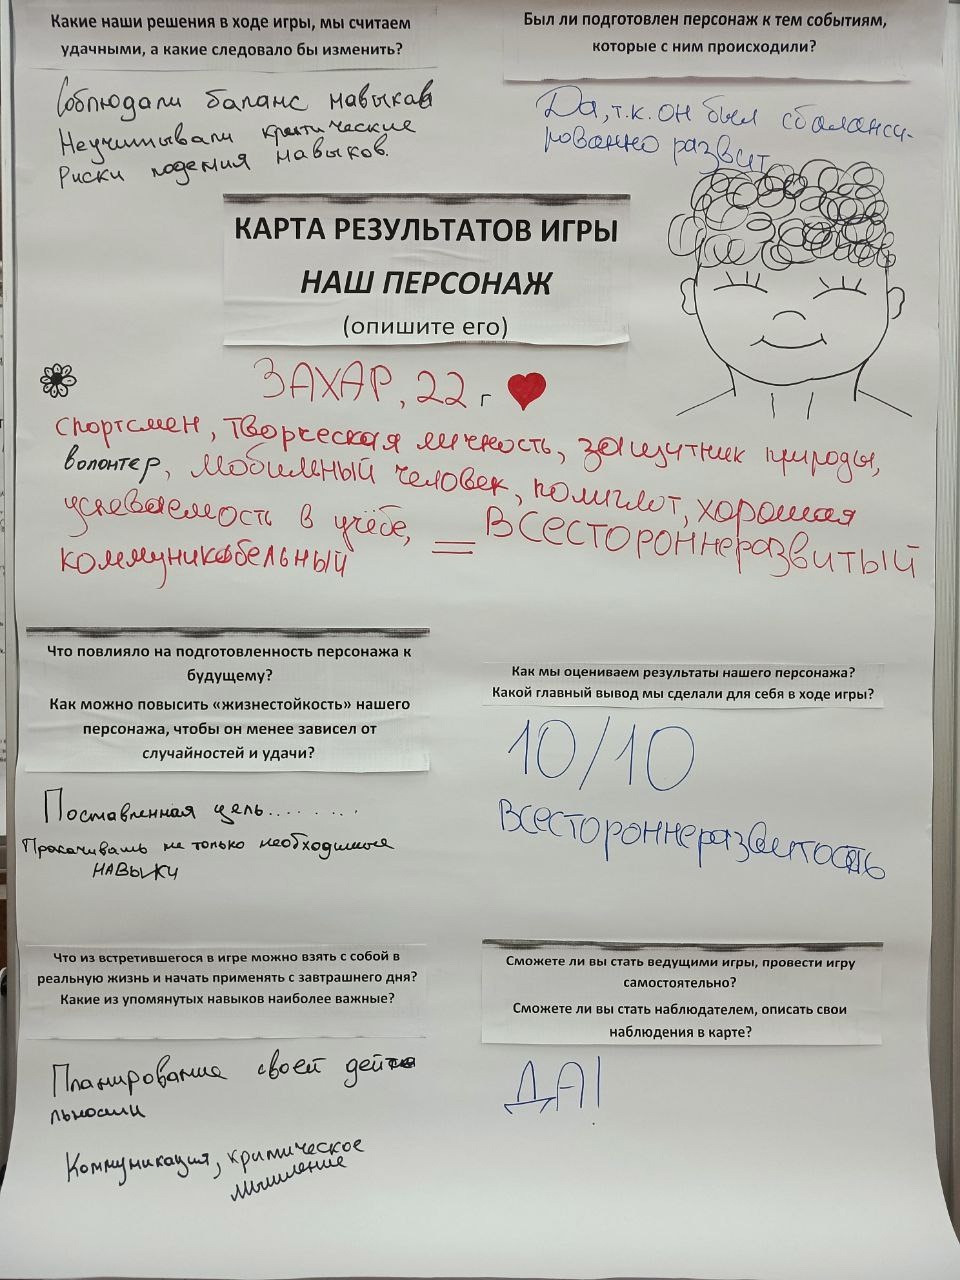 Какие наши решения в ходе игры, мы считаем
удачными, а какие следовало бы изменить?
Соблюдали баланс навыков
Неучитывали критические
Риски подения навыков.
Был ли подготовлен персонаж к тем событиям,
которые с ним происходили?
Да, т.к. он был сбаланси-
рованно развит
КАРТА РЕЗУЛЬТАТОВ ИГРЫ
НАШ ПЕРСОНАЖ
(опишите его)
ЗАХАР, 22 г
спортсмен, творческая личность, защитник природы,
волонтер, мобильный человек, полиглот, хорошая
успеваемость в учёбе, = ВСЕСТОРОННЕРАЗВИТЫЙ
коммуникабельный
Что повлияло на подготовленность персонажа к
будущему?
Как можно повысить «жизнестойкость» нашего
персонажа, чтобы он менее зависел от
случайностей и удачи?
Поставленная цель.........
Прокачивать не только необходимые
навыки
Как мы оцениваем результаты нашего персонажа?
Какой главный вывод мы сделали для себя в ходе игры?
10/10
Всестороннеразвитость
Что из встретившегося в игре можно взять с собой в
реальную жизнь и начать применять с завтрашнего дня?
Какие из упомянутых навыков наиболее важные?
Планирование своей деяте
льности
Коммуникация, критическое
мышление
Сможете ли вы стать ведущими игры, провести игру
самостоятельно?
Сможете ли вы стать наблюдателем, описать свои
наблюдения в карте?
ДА!